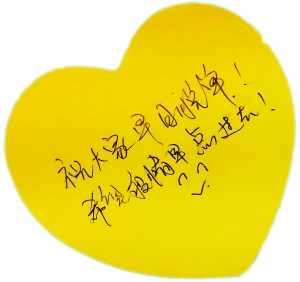 祝大家早日脱单!!
希望疫情早点过去!